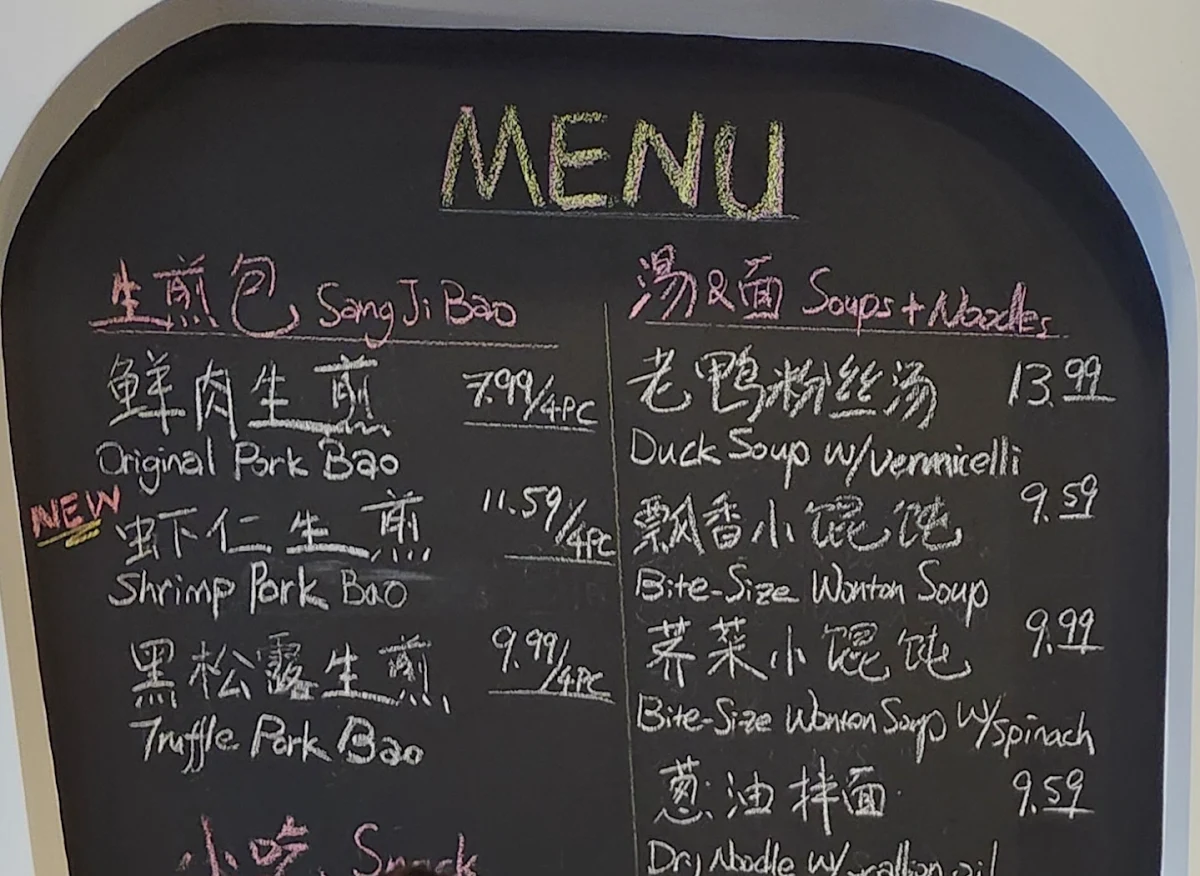 MENU
生煎包 SangJi Bao
鲜肉生煎 7.99/4PC
Original Pork Bao
NEW
虾仁生煎 11.59/4PC
Shrimp Pork Bao
黑松露生煎 9.99/4PC
Truffle Pork Bao
小吃 Snack
湯&面 Soups + Noodles
老鸭粉丝汤 13.99
Duck Soup w/vermicelli
飘香小馄饨 9.59
Bite-Size Wonton Soup
荠菜小馄饨 9.99
Bite-Size Wonton Soup w/spinach
葱油拌面 9.59
Dry Noodle w/ oil